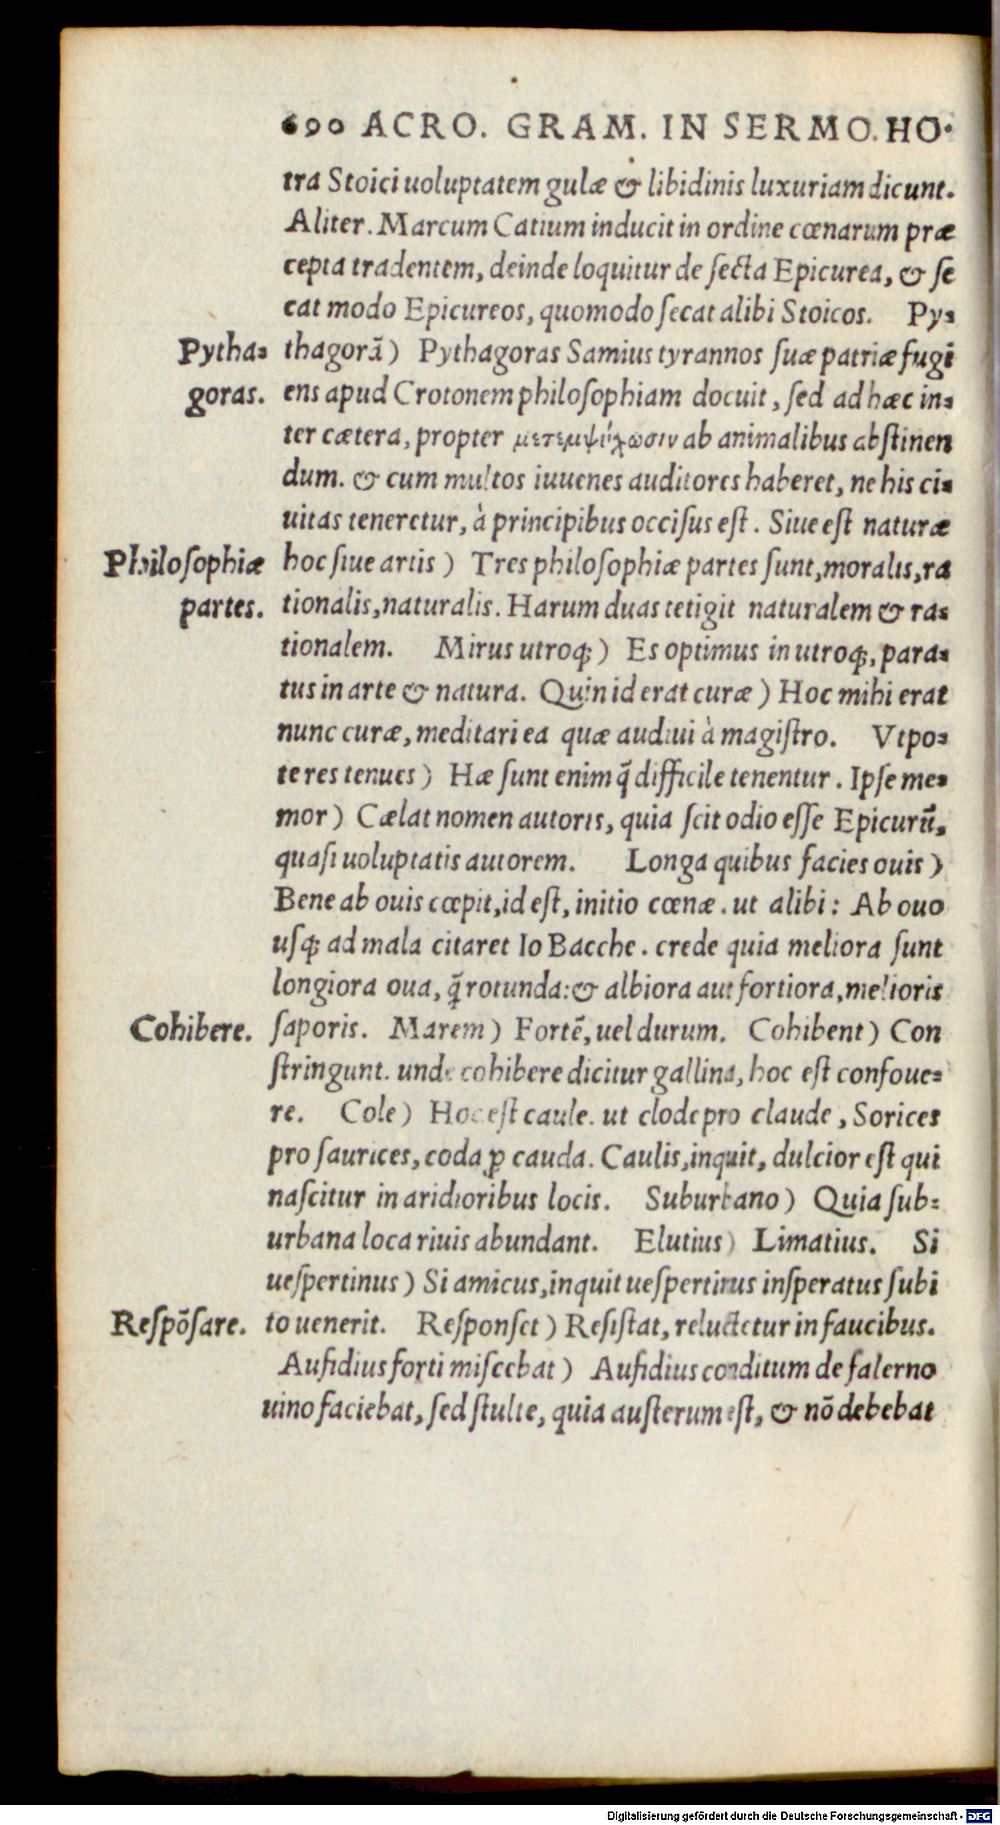 690 ACRO. GRAM. IN SERMO. HO•
tra Stoici uoluptatem gulæ & libidinis luxuriam dicunt.
Aliter. Marcum Catium inducit in ordine cœnarum præ
cepta tradentem, deinde loquitur de ſecta Epicurea, & ſe
cat modo Epicureos, quomodo ſecat alibi Stoicos. Py⸗
Pytha⸗ thagorā) Pythagoras Samius tyrannos ſuæ patriæ fugi
goras. ens apud Crotonem philoſophiam docuit, ſed ad hæc in⸗
ter cætera, propter μετεμψύχωσιν ab animalibus abſtinen
dum. & cum multos iuuenes auditores haberet, ne his ci⸗
uitas teneretur, à principibus occiſus eſt. Siue eſt naturæ
Philoſophiæ hoc ſiue artis) Tres philoſophiæ partes ſunt, moralis, ra
partes. tionalis, naturalis. Harum duas tetigit naturalem & ra⸗
tionalem. Mirus utroq;) Es optimus in utroq;, para⸗
tus in arte & natura. Quin id erat curæ) Hoc mihi erat
nunc curæ, meditari ea quæ audiui à magiſtro. Vtpo⸗
te res tenues) Hæ ſunt enim q̄ difficile tenentur. Ipſe me⸗
mor) Cælat nomen autoris, quia ſcit odio eſſe Epicurū,
quaſi uoluptatis autorem. Longa quibus facies ouis)
Bene ab ouis cœpit, id eſt, initio cœnæ. ut alibi: Ab ouo
uſq; ad mala citaret Io Bacche. crede quia meliora ſunt
longiora oua, q̄ rotunda: & albiora aut fortiora, melioris
Cohibere. ſaporis. Marem) Fortē, uel durum. Cohibent) Con
ſtringunt. unde cohibere dicitur gallina, hoc eſt confoue⸗
re. Cole) Hoc eſt caule. ut clode pro claude, Sorices
pro ſaurices, coda ꝓ cauda. Caulis, inquit, dulcior eſt qui
naſcitur in aridioribus locis. Suburbano) Quia ſub⸗
urbana loca riuis abundant. Elutius) Limatius. Si
ueſpertinus) Si amicus, inquit ueſpertinus inſperatus ſubi
Reſpōſare. to uenerit. Reſponſet) Reſiſtat, reluctetur in faucibus.
Aufidius forti miſcebat) Aufidius conditum de falerno
uino faciebat, ſed ſtulte, quia auſterum eſt, & nō debebat
Digitalisierung gefördert durch die Deutsche Forschungsgemeinschaft - DFG